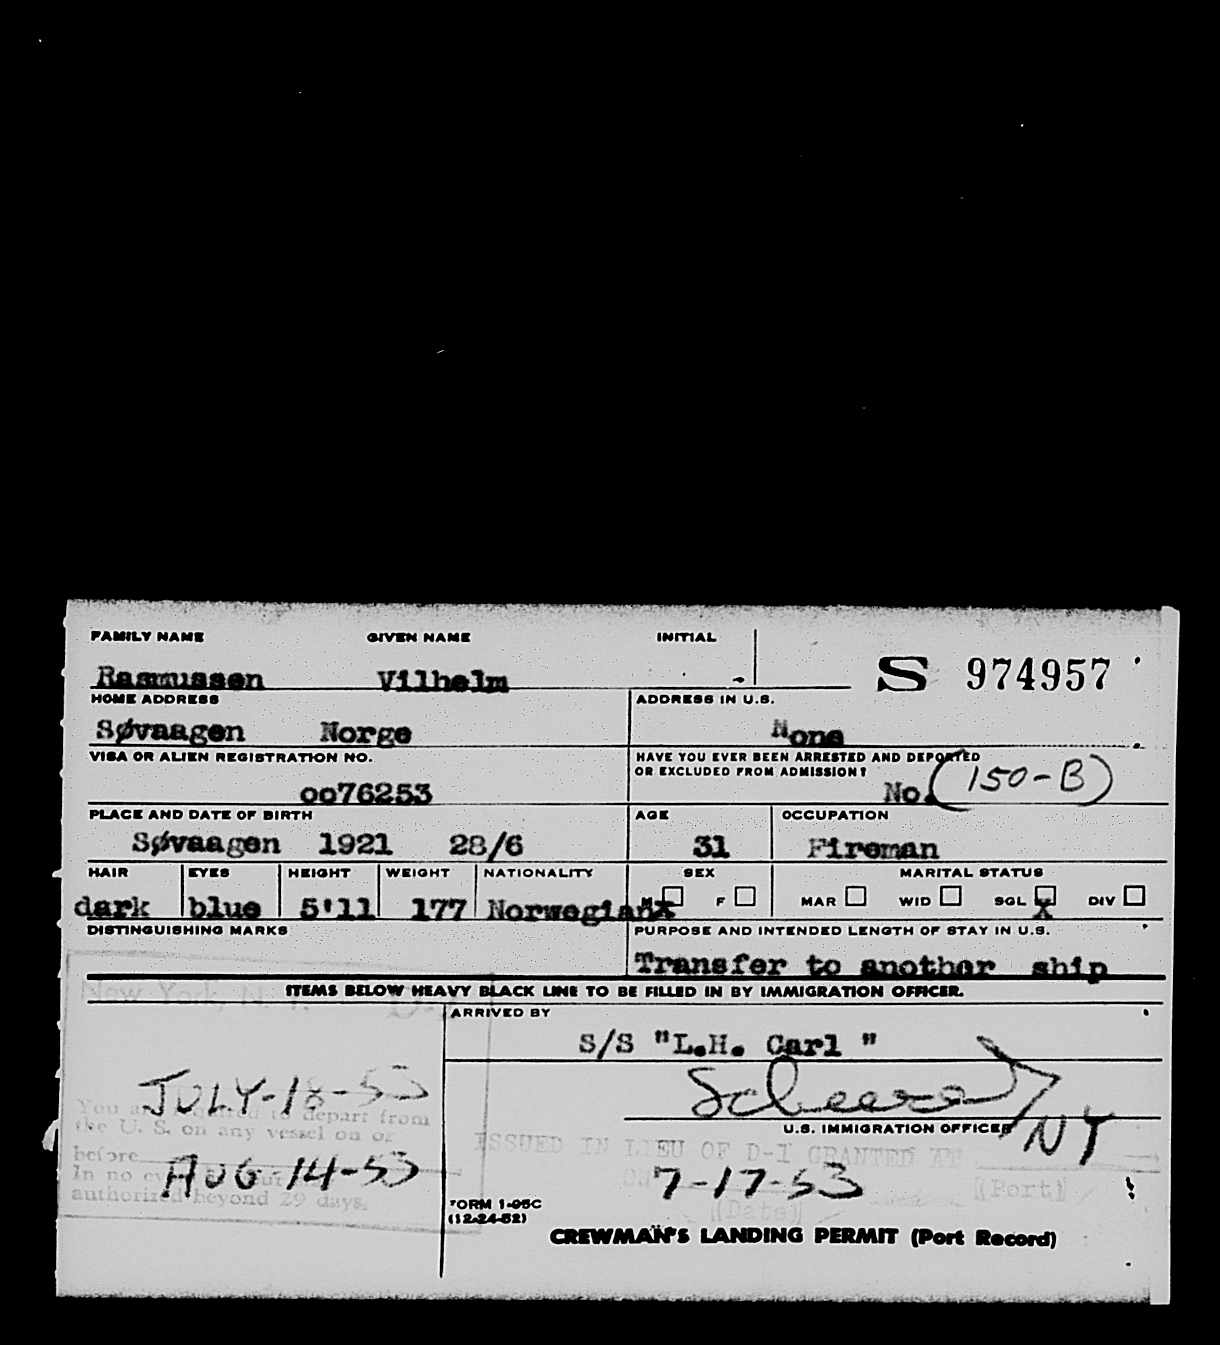 FAMILY NAME GIVEN NAME INITIAL
Rasmussen Vilhelm - S 974957
HOME ADDRESS ADDRESS IN U.S.
Søvaagen Norge None
VISA OR ALIEN REGISTRATION NO. HAVE YOU EVER BEEN ARRESTED AND DEPORTED
OR EXCLUDED FROM ADMISSION?
oo76253 No. (150-B)
PLACE AND DATE OF BIRTH AGE OCCUPATION
Søvaagen 1921 28/6 31 Fireman
HAIR EYES HEIGHT WEIGHT NATIONALITY SEX MARITAL STATUS
M F MAR WID SGL DIV
dark blue 5'11 177 Norwegian X X
DISTINGUISHING MARKS PURPOSE AND INTENDED LENGTH OF STAY IN U.S.
Transfer to another ship
New York, N. Y.
ITEMS BELOW HEAVY BLACK LINE TO BE FILLED IN BY IMMIGRATION OFFICER.
ARRIVED BY
S/S "L.H. Carl "
JULY-18-53
You are required to depart from
the U. S. on any vessel on or
before
AUG-14-53
In no event
authorized beyond 29 days.
U.S. IMMIGRATION OFFICER
NY
ISSUED IN LIEU OF D-1 GRANTED AT
7-17-53
(Port)
(Date)
FORM I-95C
(12-24-52)
CREWMAN'S LANDING PERMIT (Port Record)